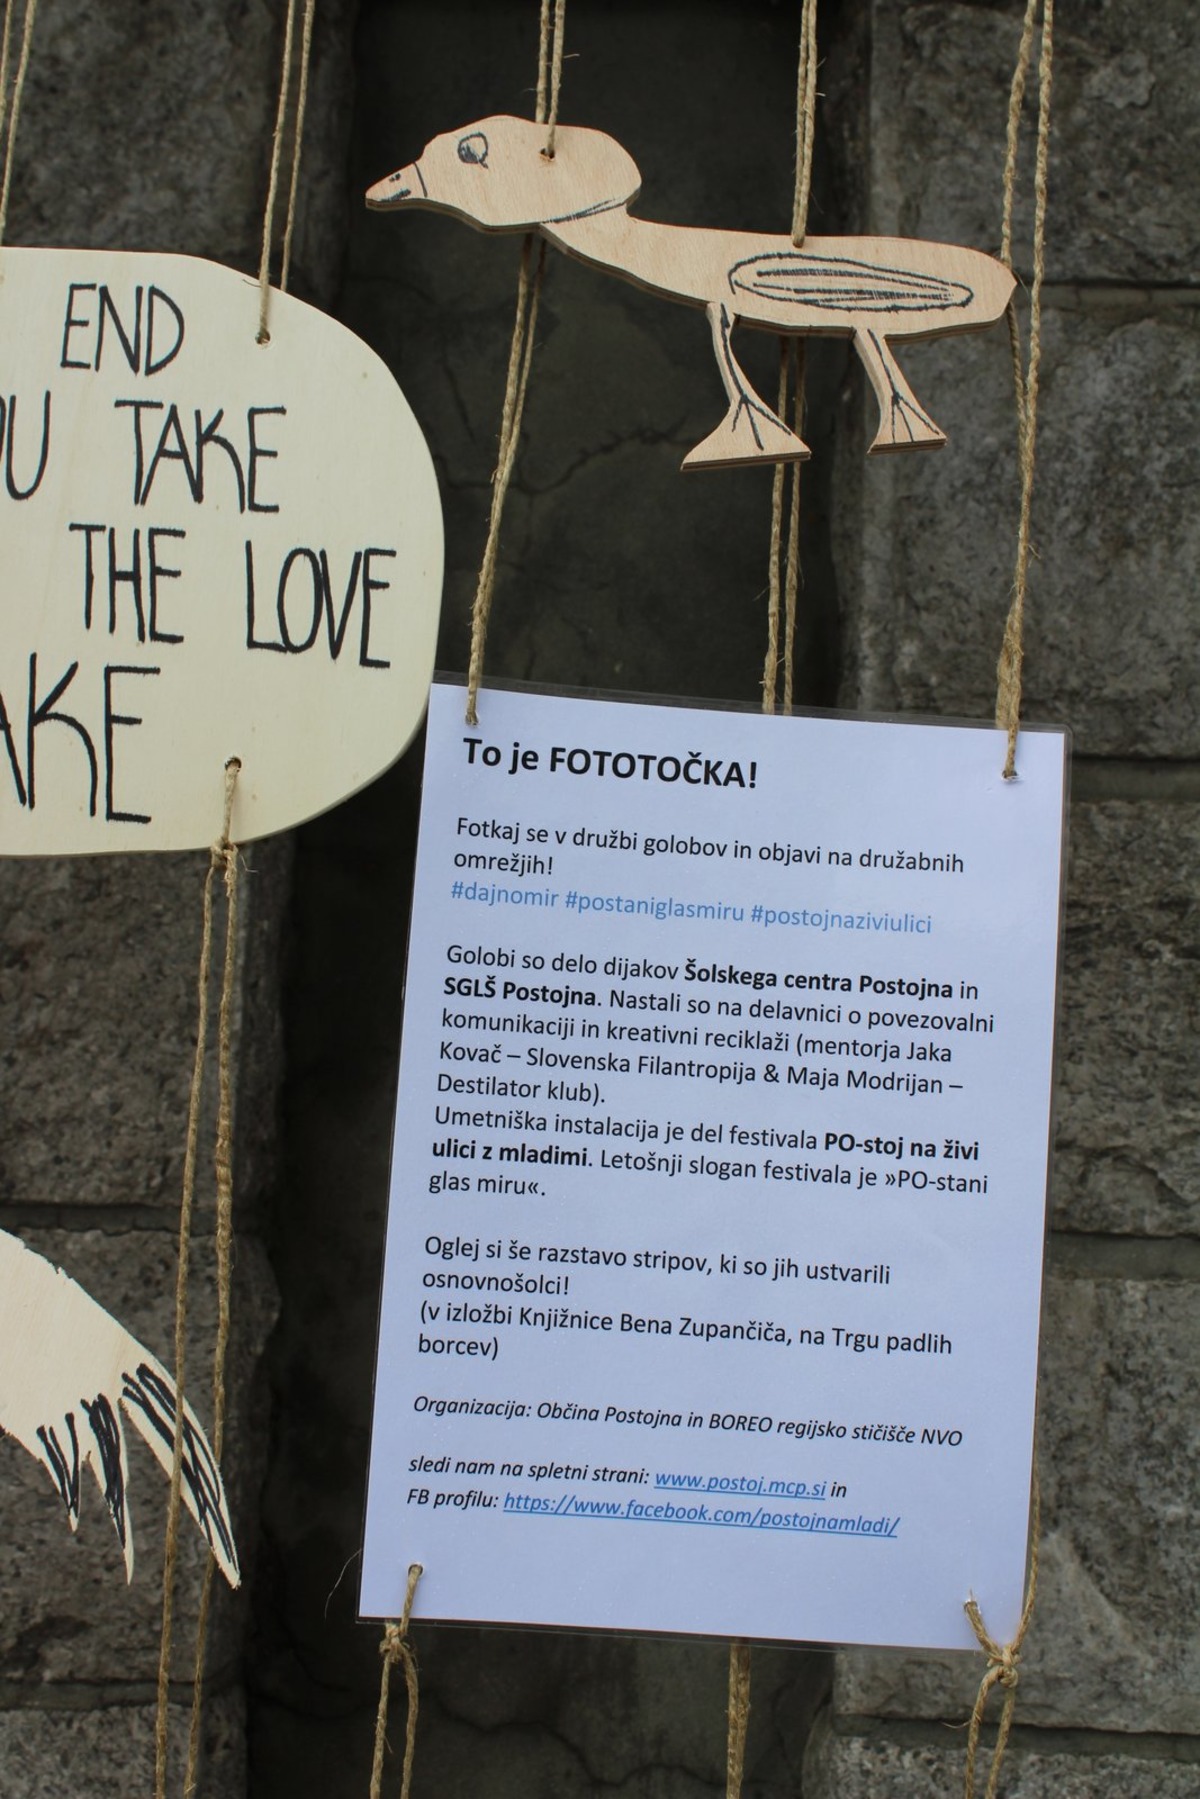 END
TAKE
THE LOVE
To je FOTOTOČKA!
Fotkaj se v družbi golobov in objavi na družabnih
omrežjih!
#dajnomir #postaniglasmiru #postojnaziviulici
Golobi so delo dijakov Šolskega centra Postojna in
SGLŠ Postojna. Nastali so na delavnici o povezovalni
komunikaciji in kreativni reciklaži (mentorja Jaka
Kovač – Slovenska Filantropija & Maja Modrijan –
Destilator klub).
Umetniška instalacija je del festivala PO-stoj na živi
ulici z mladimi. Letošnji slogan festivala je »PO-stani
glas miru«.
Oglej si še razstavo stripov, ki so jih ustvarili
osnovnošolci!
(v izložbi Knjižnice Bena Zupančiča, na Trgu padlih
borcev)
Organizacija: Občina Postojna in BOREO regijsko stičišče NVO
sledi nam na spletni strani: www.postoj.mcp.si in
FB profilu: https://www.facebook.com/postojnamladi/